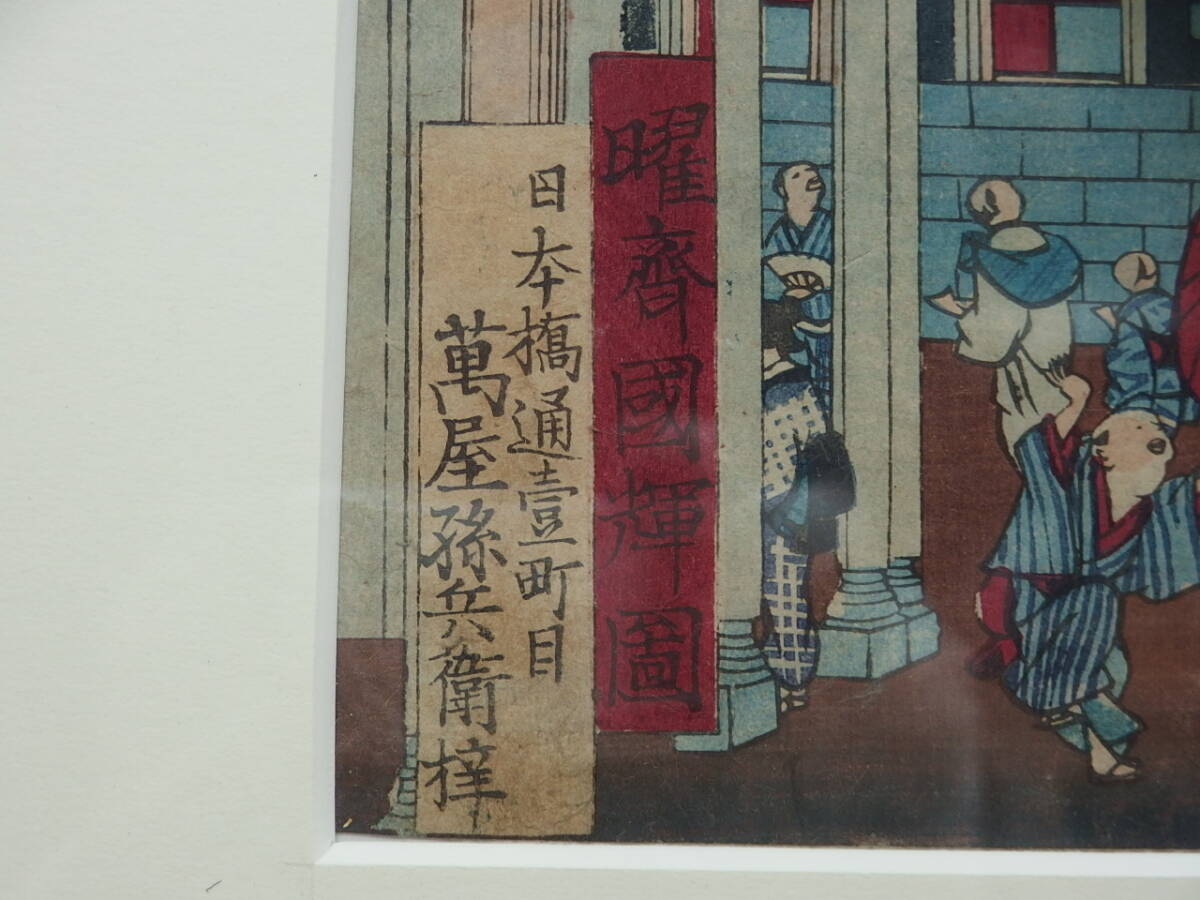 曜齋國輝圖
日本橋通壹町目
萬屋孫兵衛梓